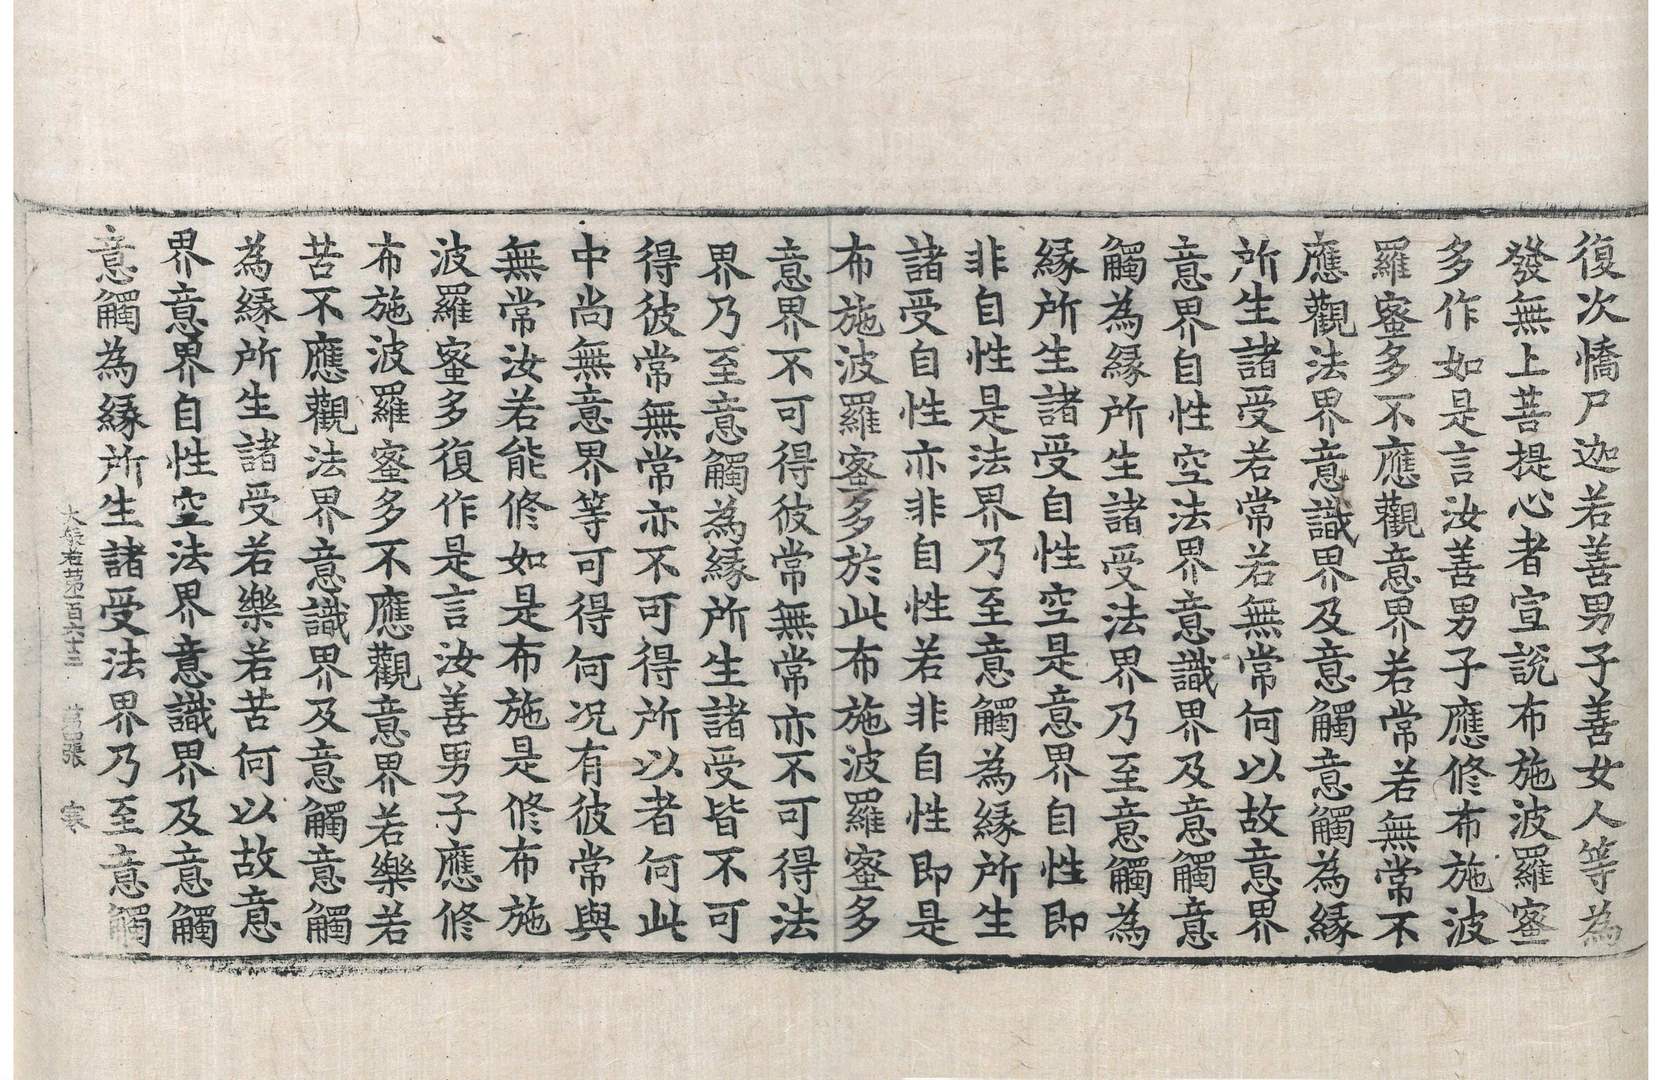 復次憍尸迦若善男子善女人等為
發無上菩提心者宣說布施波羅蜜
多作如是言汝善男子應修布施波
羅蜜多不應觀意界若常若無常不
應觀法界意識界及意觸意觸為縁
所生諸受若常若無常何以故意界
意界自性空法界意識界及意觸意
觸為縁所生諸受法界乃至意觸為
縁所生諸受自性空是意界自性即
非自性是法界乃至意觸為縁所生
諸受自性亦非自性若非自性即是
布施波羅蜜多於此布施波羅蜜多
意界不可得彼常無常亦不可得法
界乃至意觸為縁所生諸受皆不可
得彼常無常亦不可得所以者何此
中尚無意界等可得何况有彼常與
無常汝若能修如是布施是修布施
波羅蜜多復作是言汝善男子應修
布施波羅蜜多不應觀意界若樂若
苦不應觀法界意識界及意觸意觸
為縁所生諸受若樂若苦何以故意
界意界自性空法界意識界及意觸
意觸為縁所生諸受法界乃至意觸
大般若第一百六十三 第四張 寒